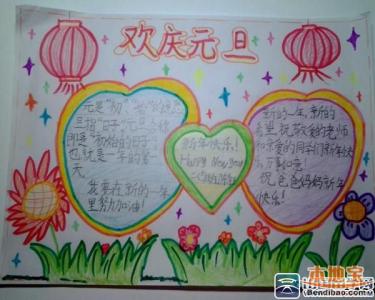 欢庆元旦
元是"初""始"的意思
旦指"日子",元旦合称
即是"初始的日子",
也就是一年的第
一天
我要在新的一年
里努力加油!
新年快乐!
Happy New Year
新的一年,新的
希望,祝敬爱的老师
和亲爱的同学们新年快
乐
祝爸爸妈妈新年
快乐!
本地宝
Bendibao.com